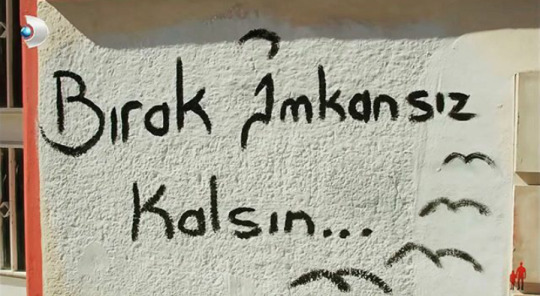 Bırak İmkansız
Kalsın...